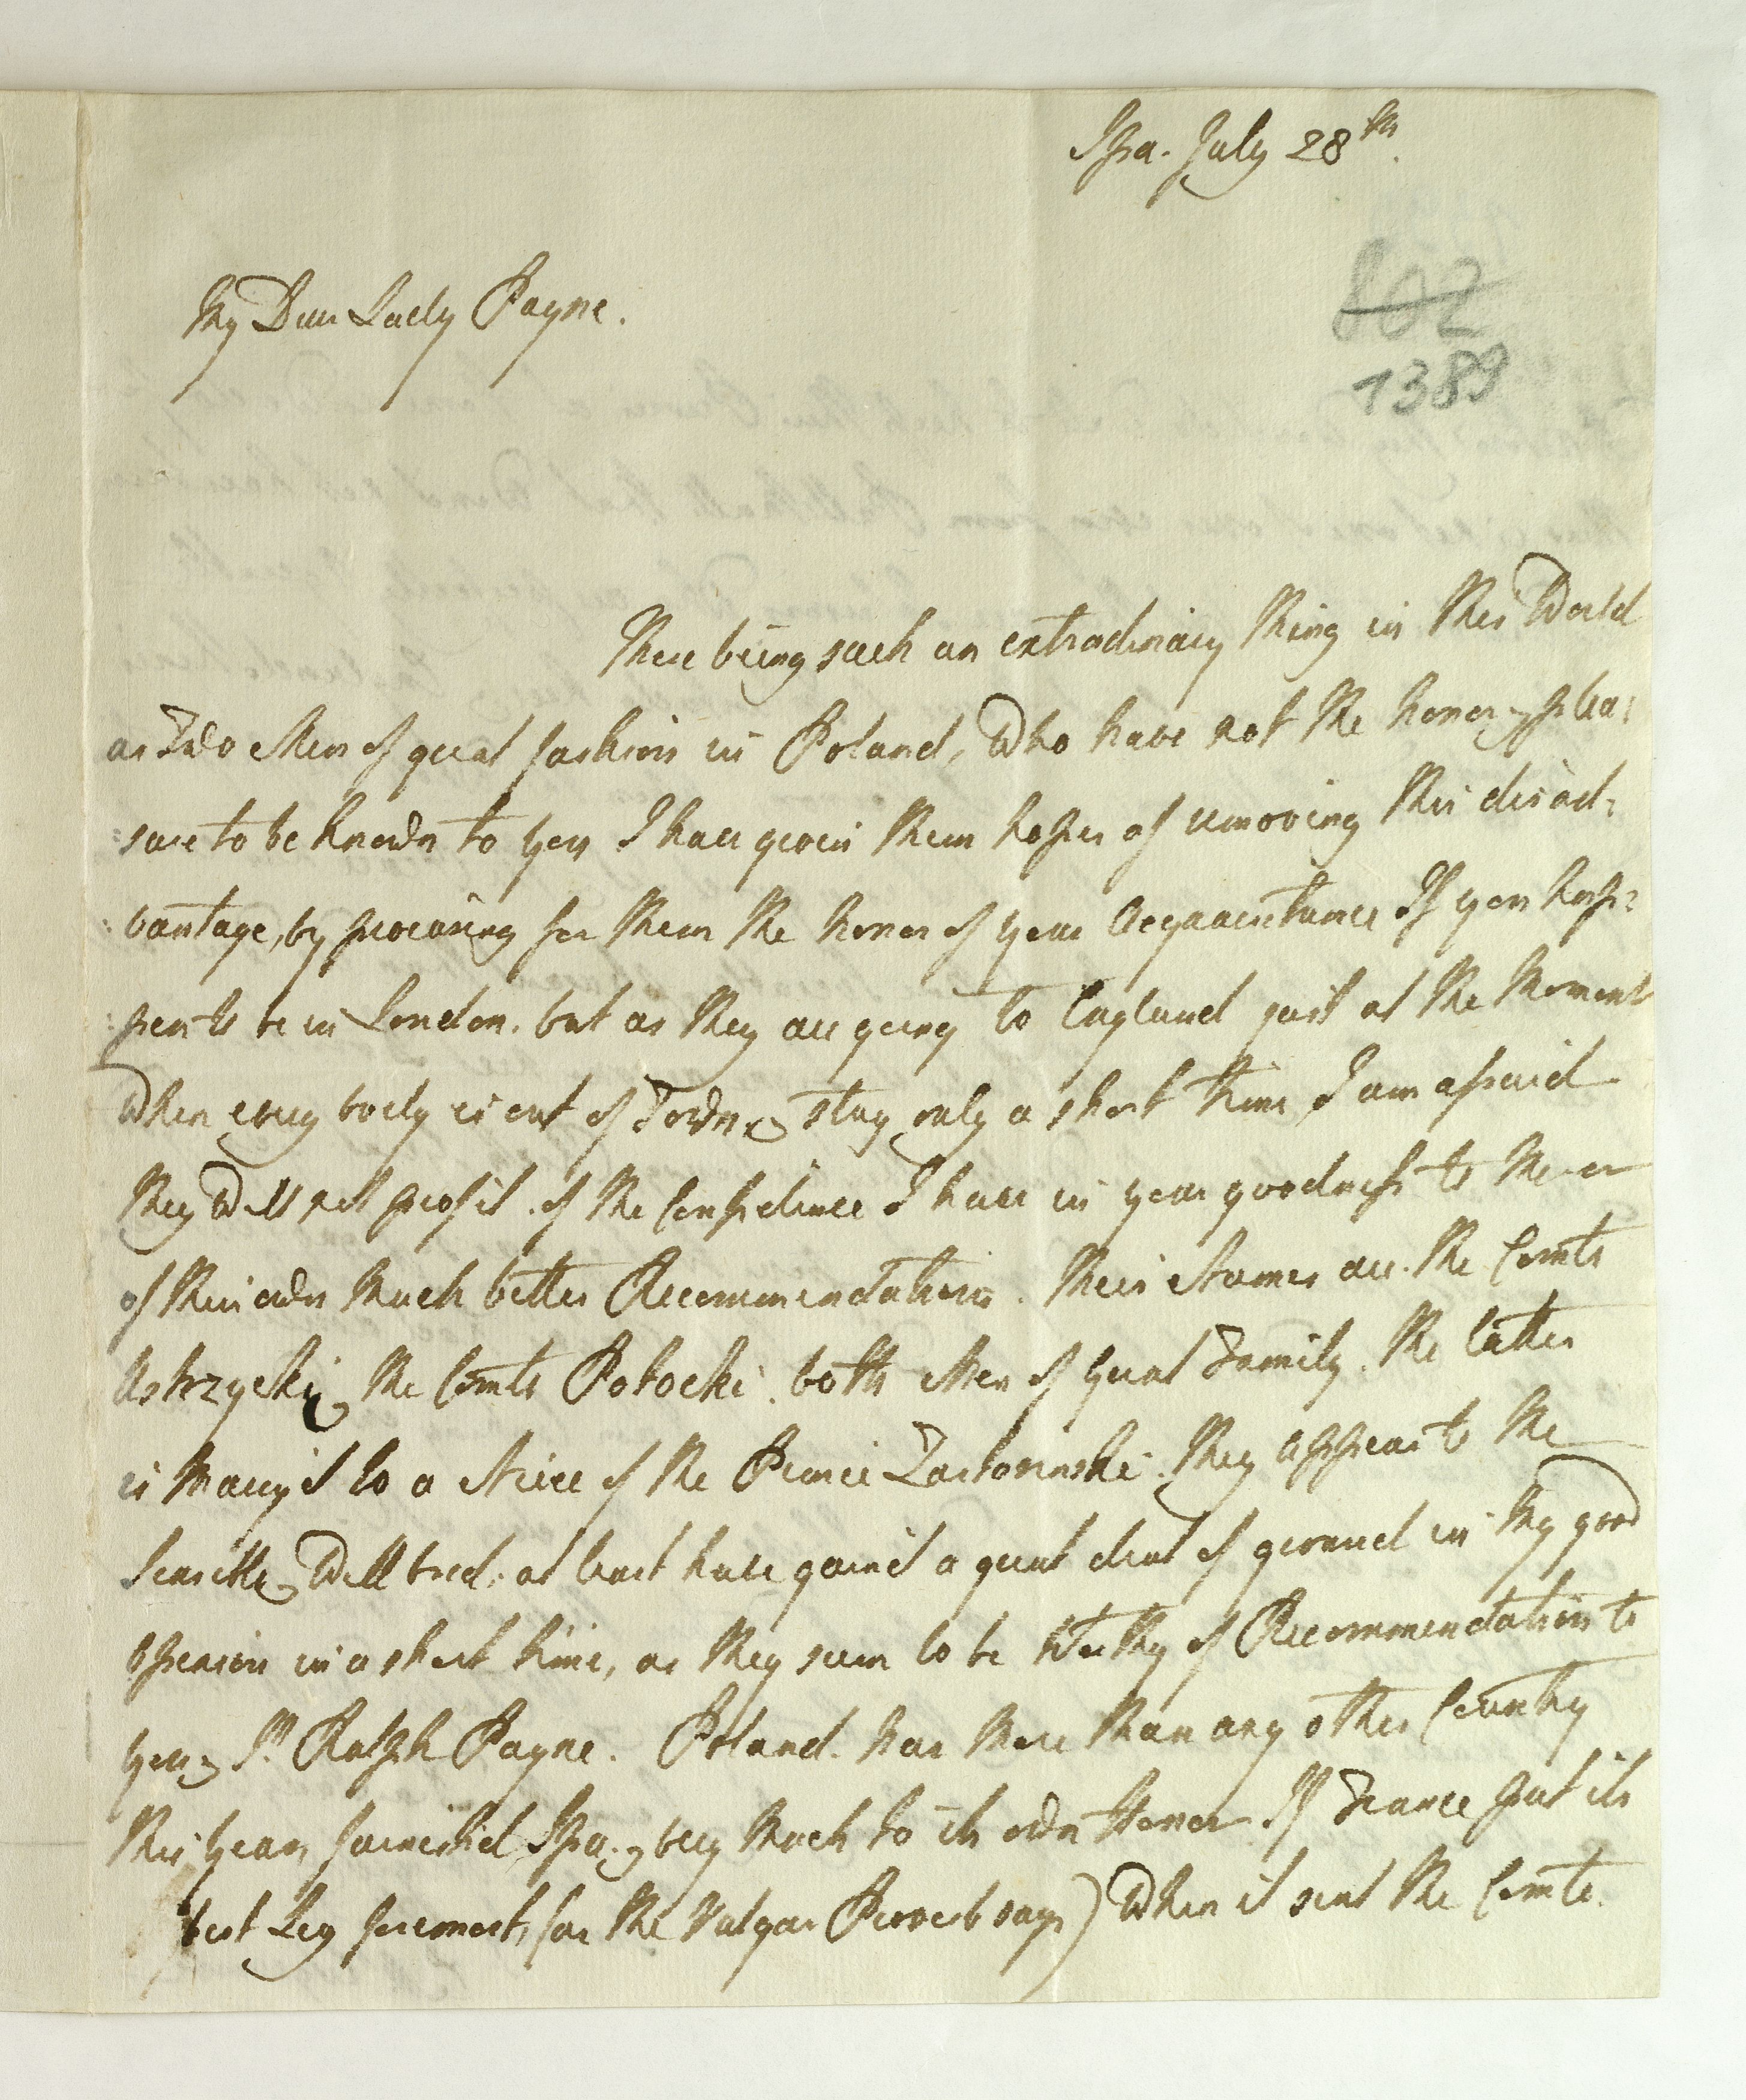 Spa. July 28th.
My Dear Lady Payne.
602
1389
There being such an extradinary thing in this World
as Two Men of great fashion in Poland, Who have not the honor & plea:
:sure to be known to you I have given them hopes of removing this disad:
:vantage, by procuring for them the honor of your Acquaintance If you hap:
:pen to be in London. but as they are going to England just at the Moment
When every body is out of Town & stay only a short time, I am afraid
they Will not profit of the Confidence I have in your goodness to Me or
of their own Much better Recommendations. their Names are. the Comte
Ustrzycki, & the Comte Potocki. both Men of great Family. the latter
is Marry'd to a Niece of the Prince Zartorinski. they appear to Me
Sensible & Well bred. at least have gain'd a great deal of ground in My good
opinion in a short time, as they seem to be Worthy of Recommendation to
you & Sr. Ralph Payne. Poland. has More than any other Country
this year, furnished Spa. & very Much to its own Honor. If France put its
best Leg foremost, (as the Vulgar Proverb says) When it sent the Comte.